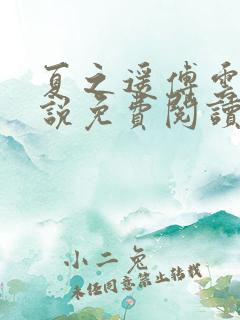 夏之遥傅雲
說免費閱讀
小二兔
未经同意禁止转载